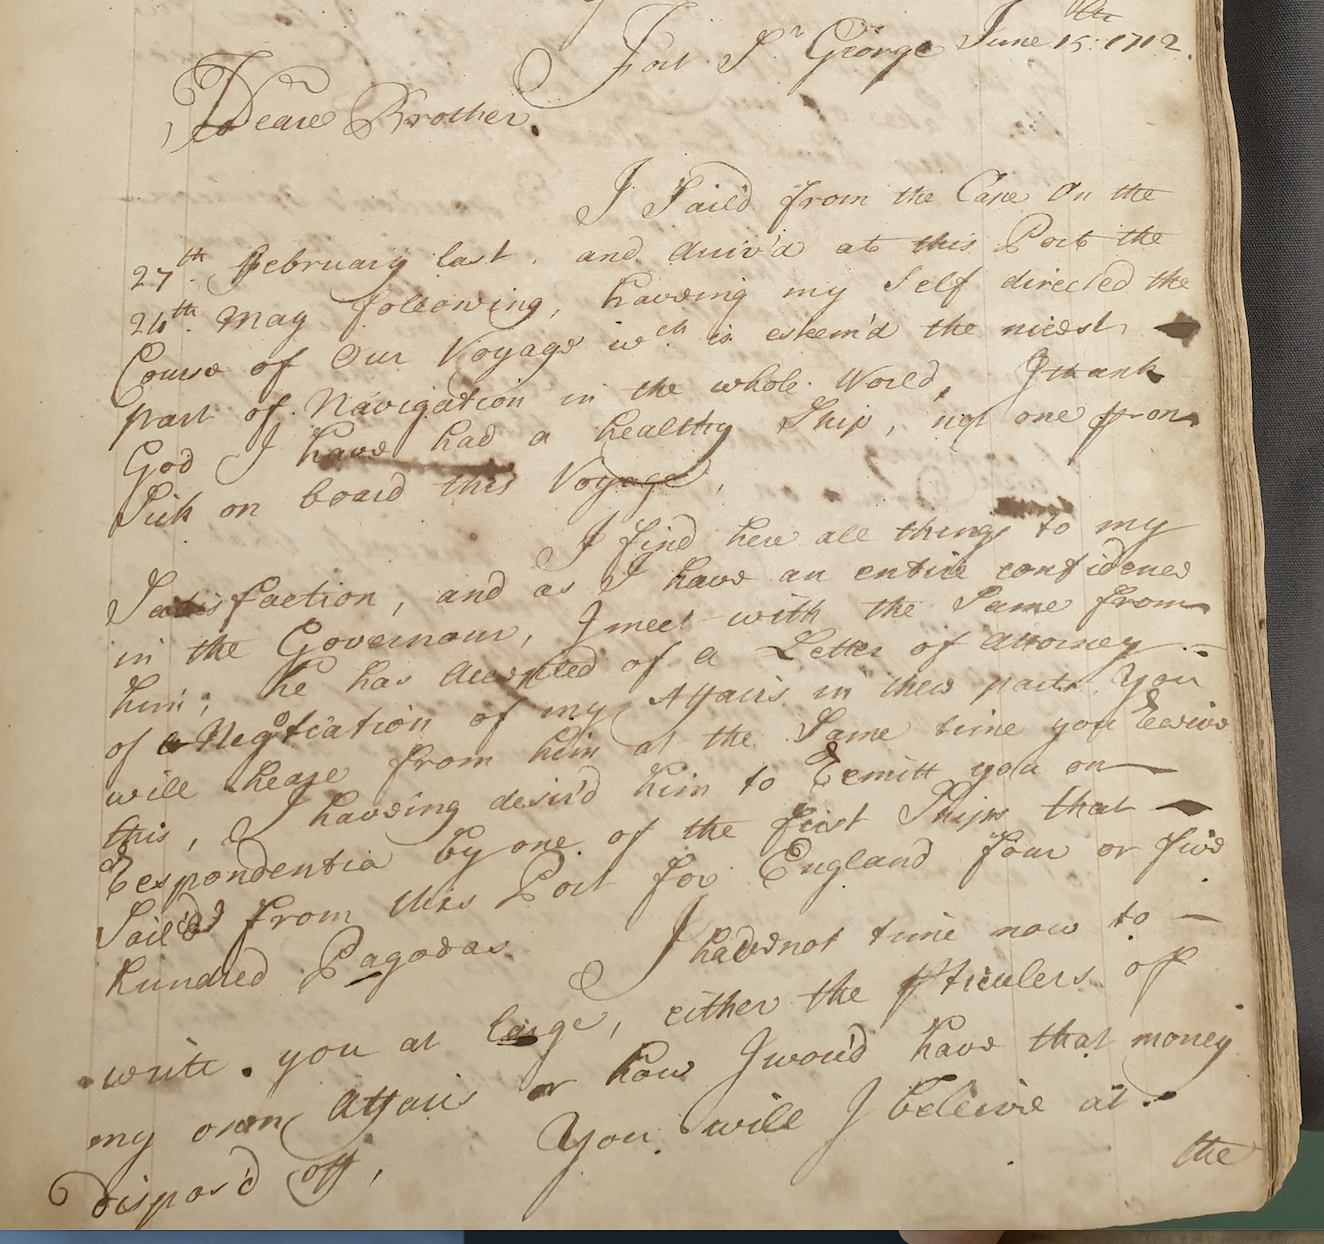 Fort St George June 15th: 1712
Deare Brother.
I Sail'd from the Cape On the
27th: February last, and Arriv'd at this Port the
24th: May following, haveing my Self directed the
Course of Our Voyage wch is esteem'd the nicest
part of Navigation in the whole World, I thank
God I have had a healthy Ship, not one pson
Sick on board this Voyage,
I find here all things to my
Satisfaction, and as I have an entire confidence
in the Governour, I meet with the Same from
him; he has Accepted of a Letter of Attorney
of Negotiation of my Affairs in these parts, You
will heare from him at the Same time you Receive
this, I haveing desir'd him to Remitt you on
Respondentia by one of the first Ships that
Sail'd from this Port for England four or five
hundred Pagodas.
I have not time now to
write you at large, either the pticulers of
my own Affairs or how I wou'd have that money
dispos'd off, You will I beleive at
the